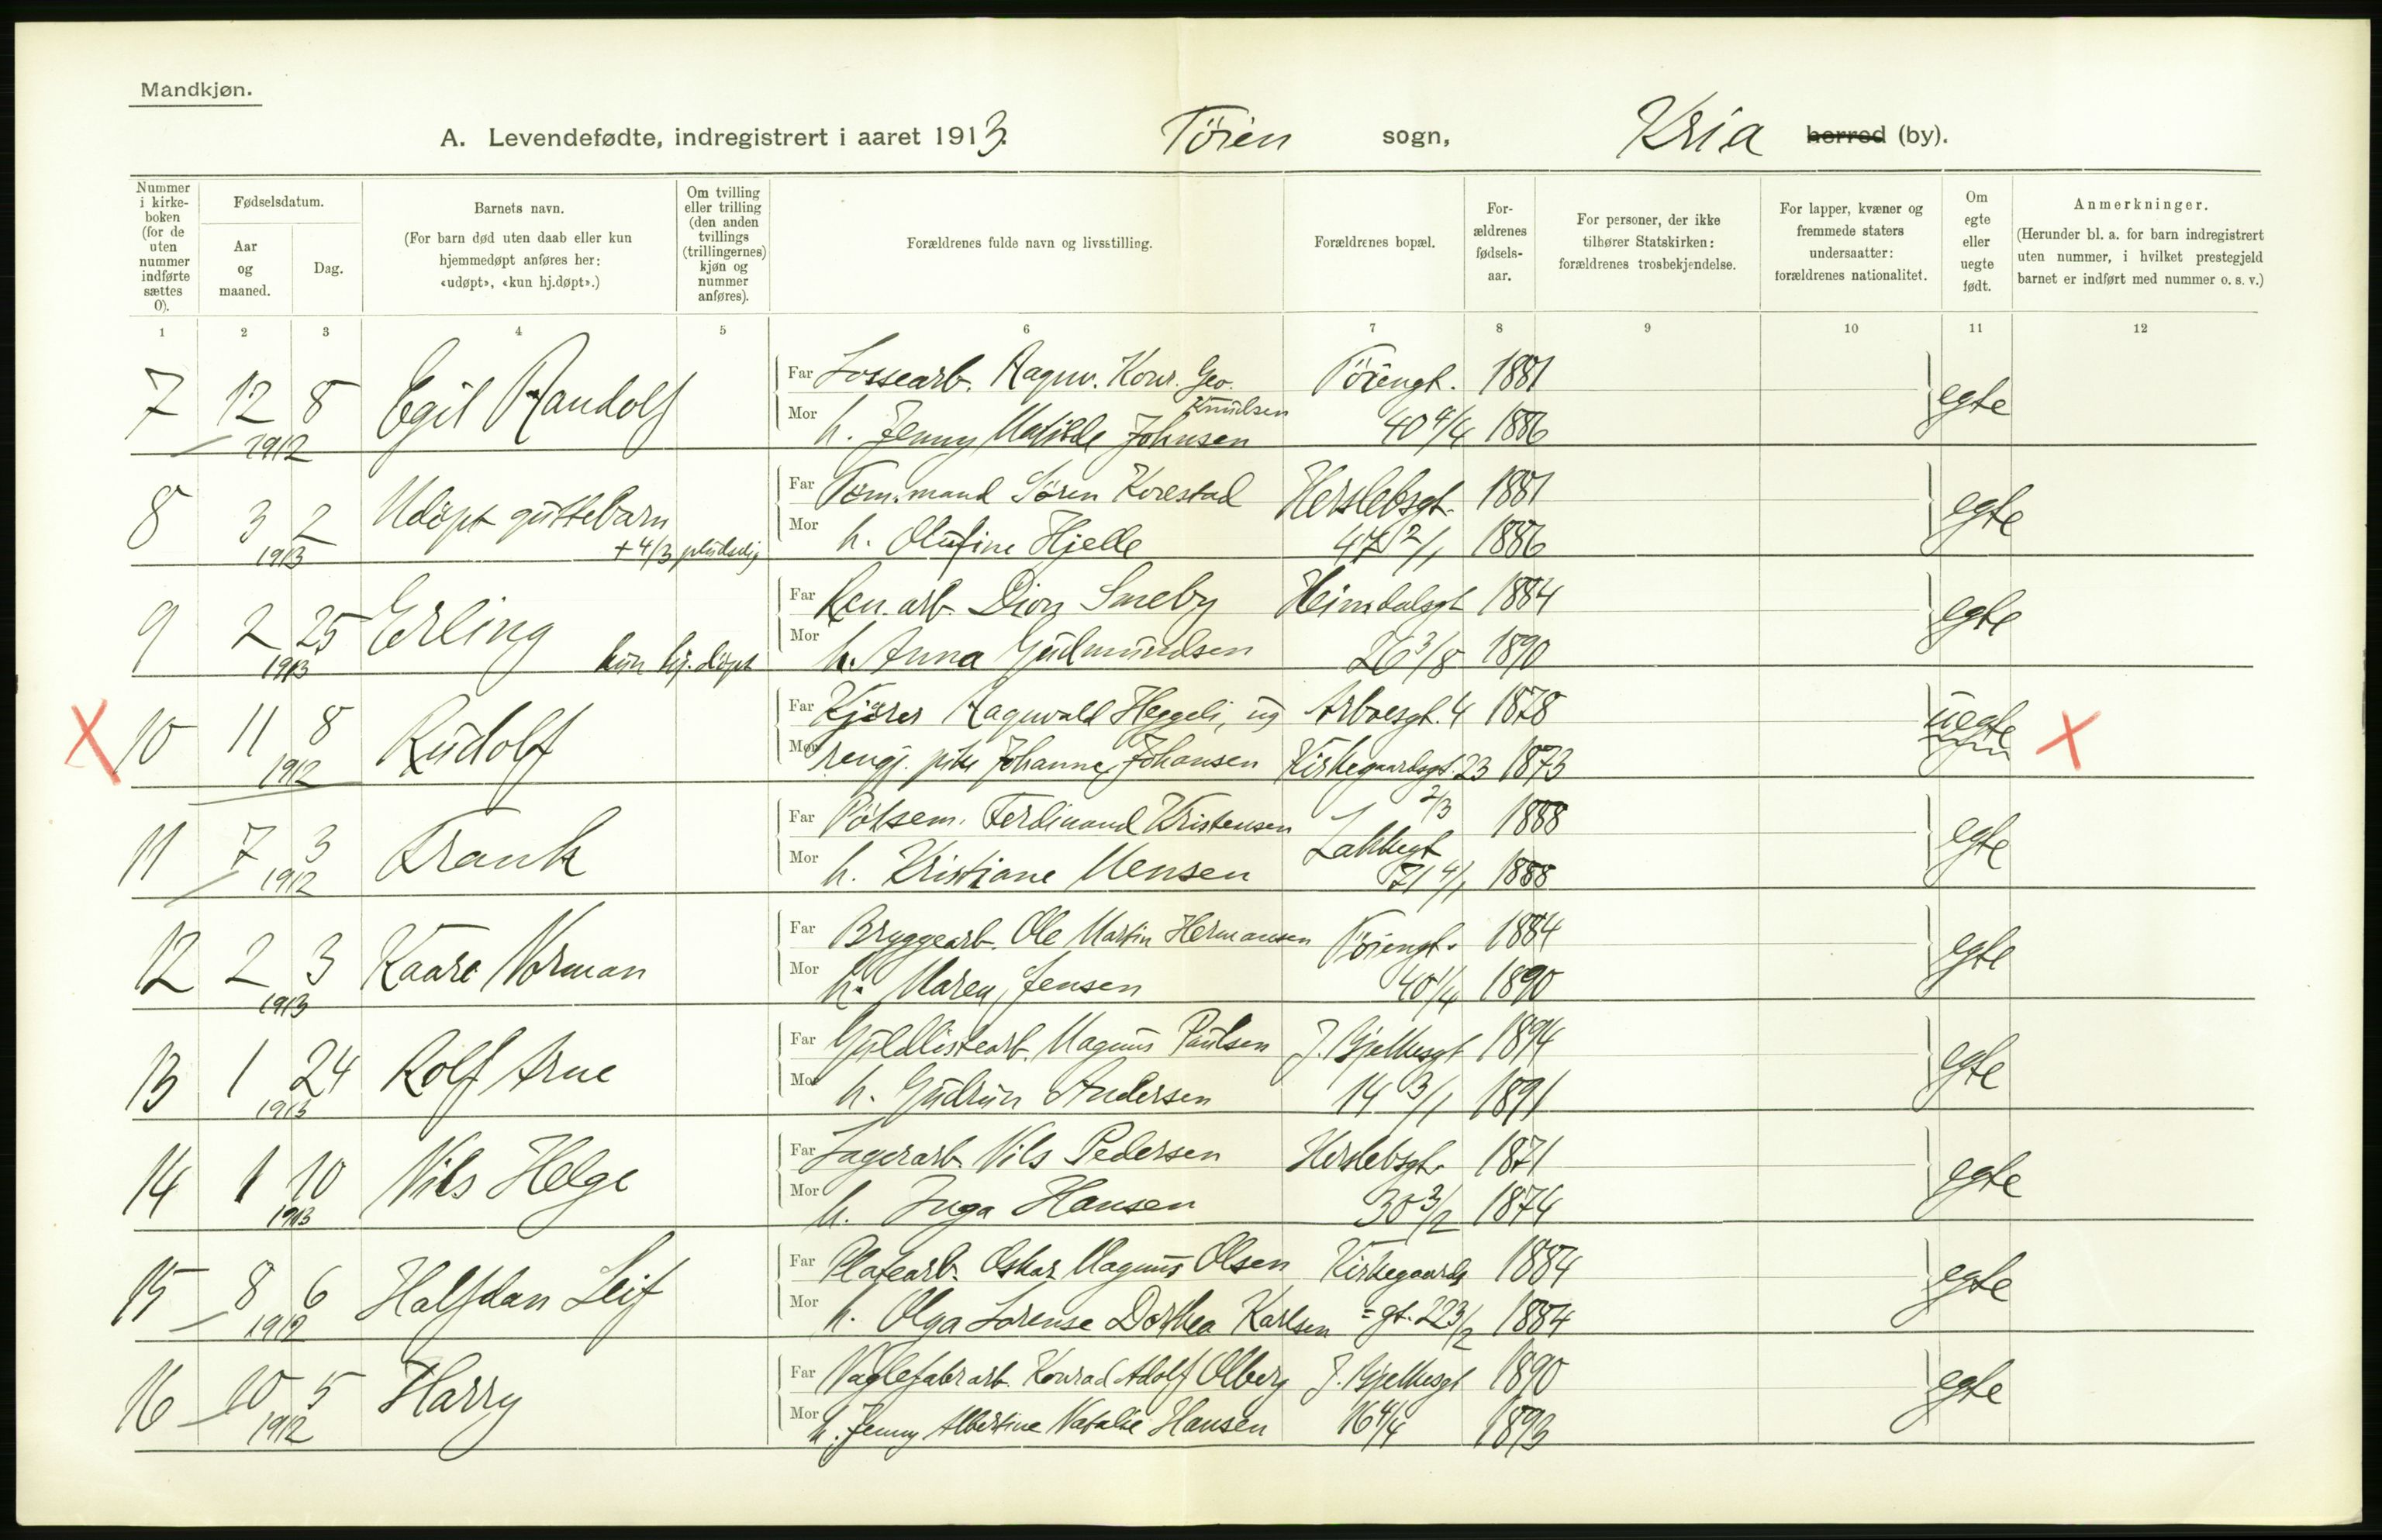 Mandkjøn.
A. Levendefødte, indregistrert i aaret 1913. Töien sogn, Kria herred (by).
Nummer i kirke-boken (for de uten nummer indførte sættes 0).
Fødselsdatum.
Aar og maaned.
Dag.
Barnets navn.
(For barn død uten daab eller kun hjemmedøpt anføres her: «udøpt», «kun hj.døpt».)
Om tvilling eller trilling (den anden tvillings (trillingernes) kjøn og nummer anføres).
Forældrenes fulde navn og livsstilling.
Forældrenes bopæl.
For-ældrenes fødsels-aar.
For personer, der ikke tilhører Statskirken: forældrenes trosbekjendelse.
For lapper, kvæner og fremmede staters undersaatter: forældrenes nationalitet.
Om egte eller uegte født.
Anmerkninger.
(Herunder bl. a. for barn indregistrert uten nummer, i hvilket prestegjeld barnet er indført med nummer o. s. v.)
1 2 3 4 5 6 7 8 9 10 11 12
7 12 1912 8 Egil Randolf
Far Lossearb. Ragnv. Konr. Geo. Knudsen Töiengt. 1881 egte
Mor h. Jenny Matilde Johnsen 40 4/4 1886
8 3 1913 2 Udöpt guttebarn + 4/3 pludselig
Far Töm.mand Sören Korestad Herslebsgt. 1881 egte
Mor h. Olufine Hjelle 47 2/1 1886
9 2 1913 25 Erling kun hj. döpt
Far Ren. arb. Dion Smeby Heimdalsgt 1884 egte
Mor h. Anna Gudmundsen 26 3/8 1890
X 10 11 1912 8 Rudolf
Far Kjörer Ragnvald Heggeli, ug Arboesgt. 4 1878 uegte X
Mor rengj. pike Johanne Johansen Kirkegaardsgt. 23 2/3 1873
11 7 1912 3 Frank
Far Pölsem. Ferdinand Kristensen Lakkegt 1888 egte
Mor h. Kristiane Mensen 71 4/1 1888
12 2 1913 3 Kaare Norman
Far Bryggearb. Ole Martin Hermansen Töiengt. 1884 egte
Mor h. Maren Jensen 40 1/4 1890
13 1 1913 24 Rolf Arne
Far Guldlistearb. Magnus Paulsen J. Bjelkesgt 1894 egte
Mor h. Gudrun Andersen 14 3/1 1891
14 1 1913 10 Nils Helge
Far Lagerarb. Nils Pedersen Herslebsgt. 1871 egte
Mor h. Inga Hansen 30 3/2 1874
15 8 1912 6 Halfdan Leif
Far Platearb. Oskar Magnus Olsen Kirkegaards 1884 egte
Mor h. Olga Lorense Dorthea Karlsen =gt. 22 3/2 1884
16 10 1912 5 Harry
Far Naglefabrarb. Konrad Adolf Olberg J. Bjelkesgt 1890 egte
Mor h. Jenny Albertine Natalie Hansen 16 4/4 1893